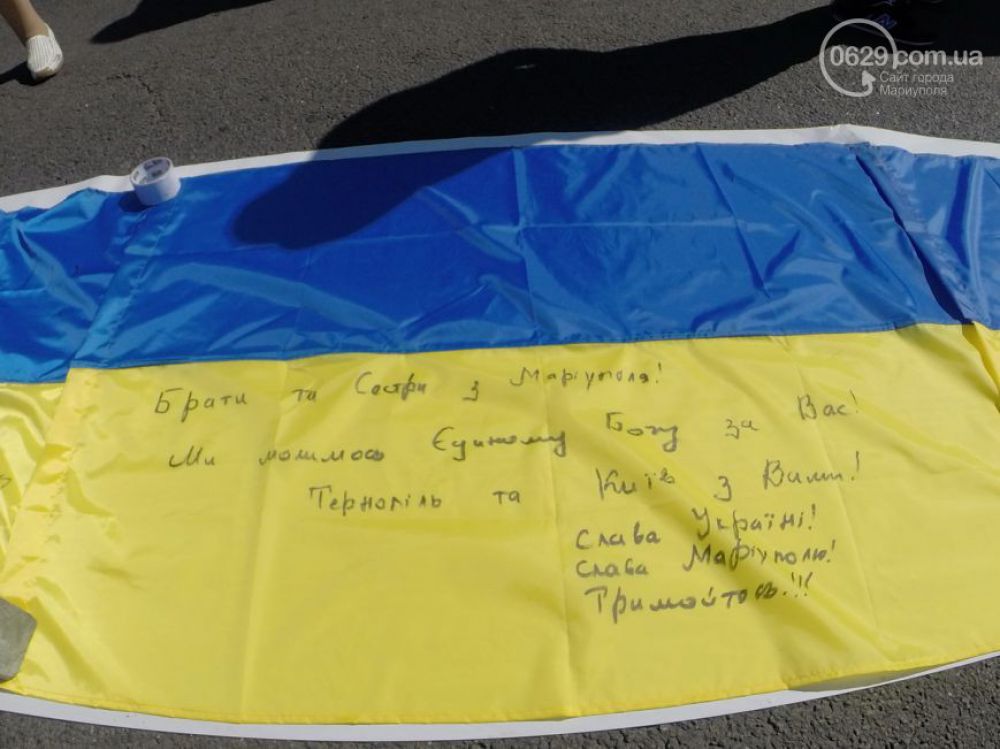 0629.com.ua
Сайт города
Мариуполя
Брати та Сестри з Маріуполя!
Ми молимось Єдиному Богу за Вас!
Тернопіль та Київ з Вами!
Слава Україні!
Слава Маріуполю!
Тримайтесь!!!